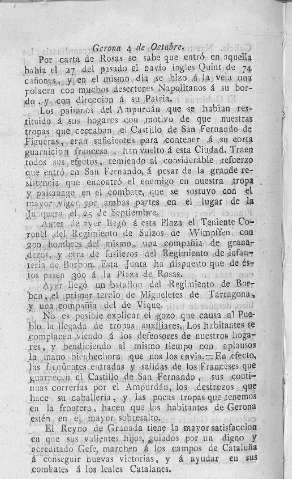 Gerona 4 de Octubre.
Por carta de Rosas se sabe que entró en aquella
bahía el 27 del pasado el navío ingles Quint de 74
cañones, y en el mismo dia se hizo á la vela una
polacra con muchos desertores Napolitanos á su bor-
do, y con direccion á su Patria.
Los paisanos del Ampurdán que se habian res-
tituido á sus hogares con motivo de que nuestras
tropas que cercaban el Castillo de San Fernando de
Figueras, eran suficientes para contener á su corta
guarnicion francesa, han vuelto á esta Ciudad. Traen
todos sus efectos, temiendo al considerable refuerzo
que entró en San Fernando, á pesar de la grande re-
sistencia que encontró el enemigo en nuestra tropa
y paisanage en el combate, que se sostuvo con el
mayor vigor por ambas partes en el lugar de la
Junquera el 25 de Septiembre.
Antes de ayer llegó á esta Plaza el Teniente Co-
ronel del Regimiento de Suizos de Wimpffen con
200 hombres del mismo, una compañia de grana-
deros, y otra de fusileros del Regimiento de infan-
tería de Borbon. Esta Junta ha dispuesto que de és-
tos pasen 300 á la Plaza de Rosas.
Ayer llegó un batallon del Regimiento de Bor-
bon, el primer tercio de Migueletes de Tarragona,
y una compañia del de Vique.
No es posible explicar el gozo que causa al Pue-
blo la llegada de tropas auxiliares. Los habitantes se
complacen viendo á los defensores de nuestros hoga-
res, y bendiciendo al mismo tiempo con aplausos
la mano bienhechora que nos los envia. En efecto,
las freqüentes entradas y salidas de los Franceses que
guarnecen el Castillo de San Fernando, sus conti-
nuas correrías por el Ampurdán, los destrozos que
hace su caballería, y las pocas tropas que tenemos
en la frontera, hacen que los habitantes de Gerona
estén en el mayor sobresalto.
El Reyno de Granada tiene la mayor satisfaccion
en que sus valientes hijos, guiados por un digno y
acreditado Gefe, marchen á los campos de Cataluña
á conseguir nuevas victorias, y á ayudar en sus
combates á los leales Catalanes.